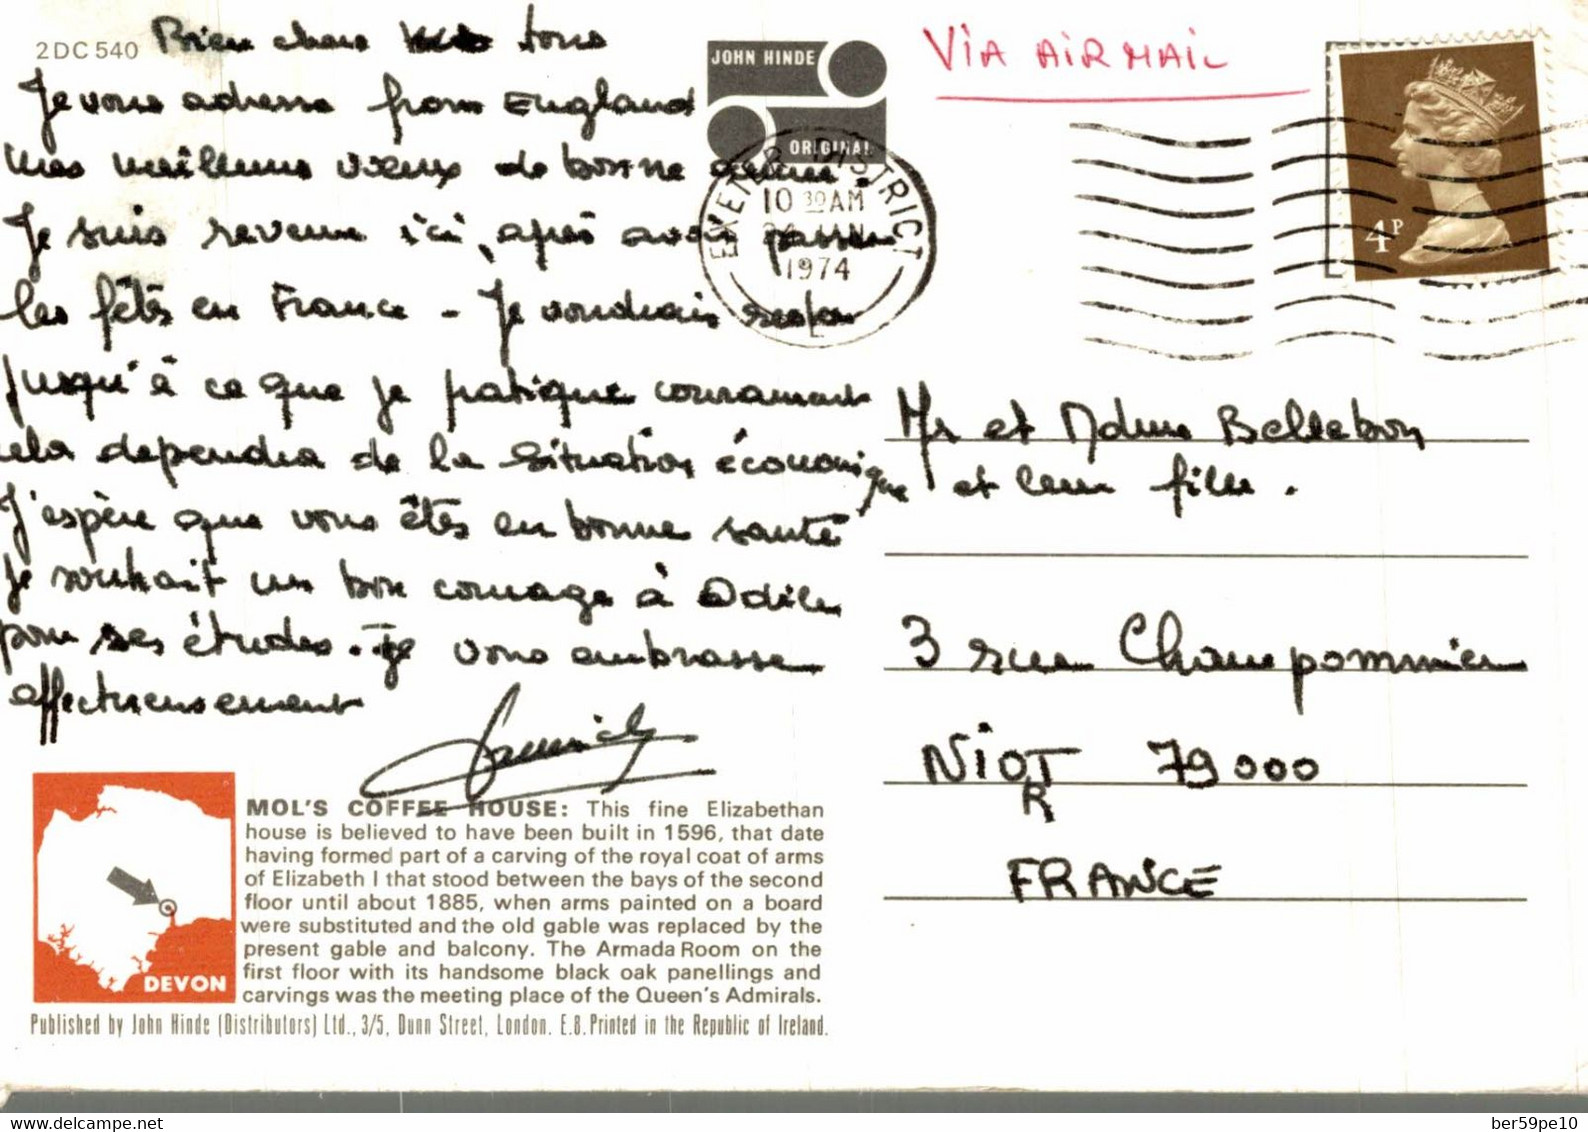 2DC 540
Bien chers tous
Je vous adresse from England
mes meilleurs vœux de bonne année.
Je suis revenue ici, après avoir passer
les fêtes en France - Je voudrais rester
jusqu'à ce que je pratique couramment
cela dependra de la situation économique
J'espère que vous êtes en bonne santé
Je souhait un bon courage à Odile
pour ses études. Je vous embrasse
affectueusement
JOHN HINDE
ORIGINAL
VIA AIR MAIL
EXETER DISTRICT
10 30 AM
1974
4P
Mr et Mdme Bellebon
et leur filles.
3 rue Champommier
NIORT 79000
FRANCE
DEVON
MOL'S COFFEE HOUSE: This fine Elizabethan
house is believed to have been built in 1596, that date
having formed part of a carving of the royal coat of arms
of Elizabeth I that stood between the bays of the second
floor until about 1885, when arms painted on a board
were substituted and the old gable was replaced by the
present gable and balcony. The Armada Room on the
first floor with its handsome black oak panellings and
carvings was the meeting place of the Queen's Admirals.
Published by John Hinde (Distributors) Ltd., 3/5, Dunn Street, London. E.8. Printed in the Republic of Ireland.
delcampe.net
ber59pe10